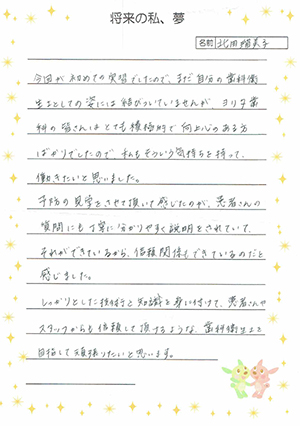 将来の私、夢
名前 北田 瑠美子
今回が初めての実習でしたので、まだ自分の歯科衛
生士としての姿には結びついていませんが、ヨリタ歯
科の皆さんはとても積極的で向上心のある方
ばかりでしたので、私もそういう気持ちを持って、
働きたいと思いました。
予防の見学をさせて頂いて感じたのが、患者さんの
質問にも丁寧に分かりやすく説明をされていて、
それができているから、信頼関係もできているのだと
感じました。
しっかりとした技術と知識を身に付けて、患者さんや
スタッフからも信頼して頂けるような、歯科衛生士を
目指して頑張りたいと思います。